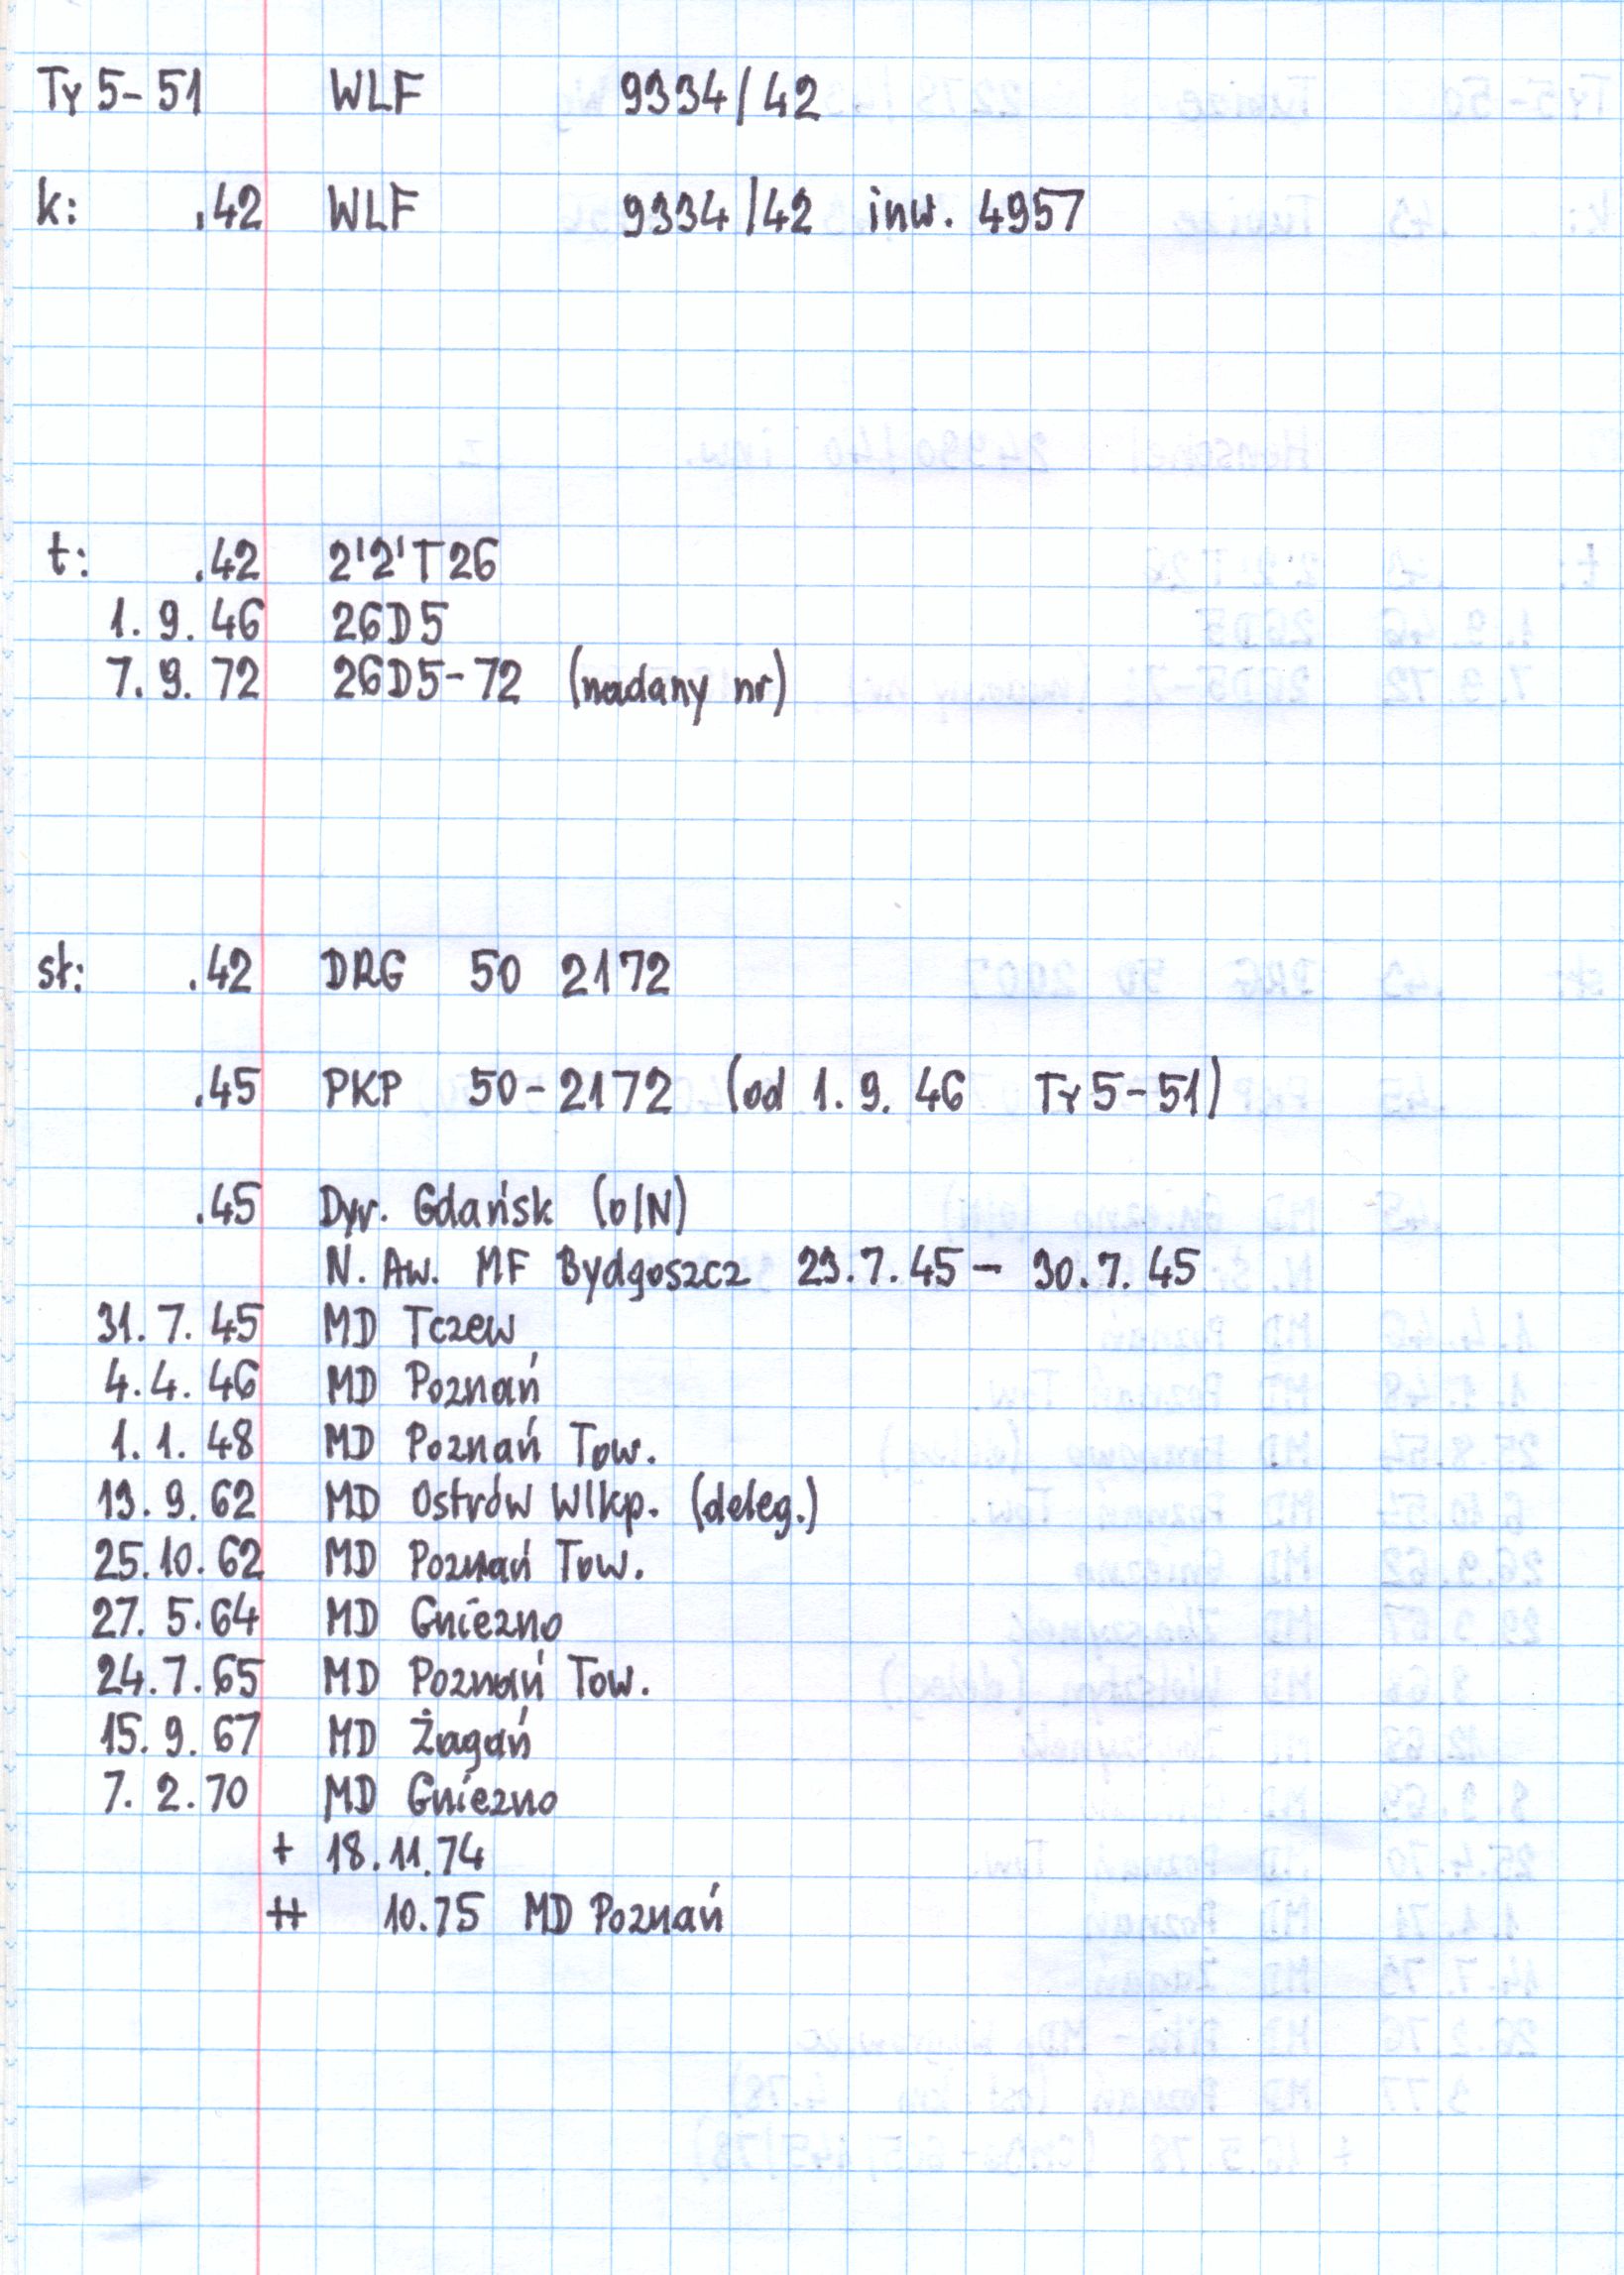 Ty 5-51 WLF 9334/42
k: .42 WLF 9334/42 inw. 4957
t: .42 2'2'T26
1.9.46 26D5
7.9.72 26D5-72 (nadany nr)
st: .42 DRG 50 2172
.45 PKP 50-2172 (od 1.9.46 Ty5-51)
.45 Dyr. Gdańsk (o/N)
N. Aw. MF Bydgoszcz 23.7.45 - 30.7.45
31.7.45 MD Tczew
4.4.46 MD Poznań
1.1.48 MD Poznań Tow.
13.9.62 MD Ostrów Wlkp. (deleg.)
25.10.62 MD Poznań Tow.
27.5.64 MD Gniezno
24.7.65 MD Poznań Tow.
15.9.67 MD Żagań
7.2.70 MD Gniezno
+ 18.11.74
++ 10.75 MD Poznań